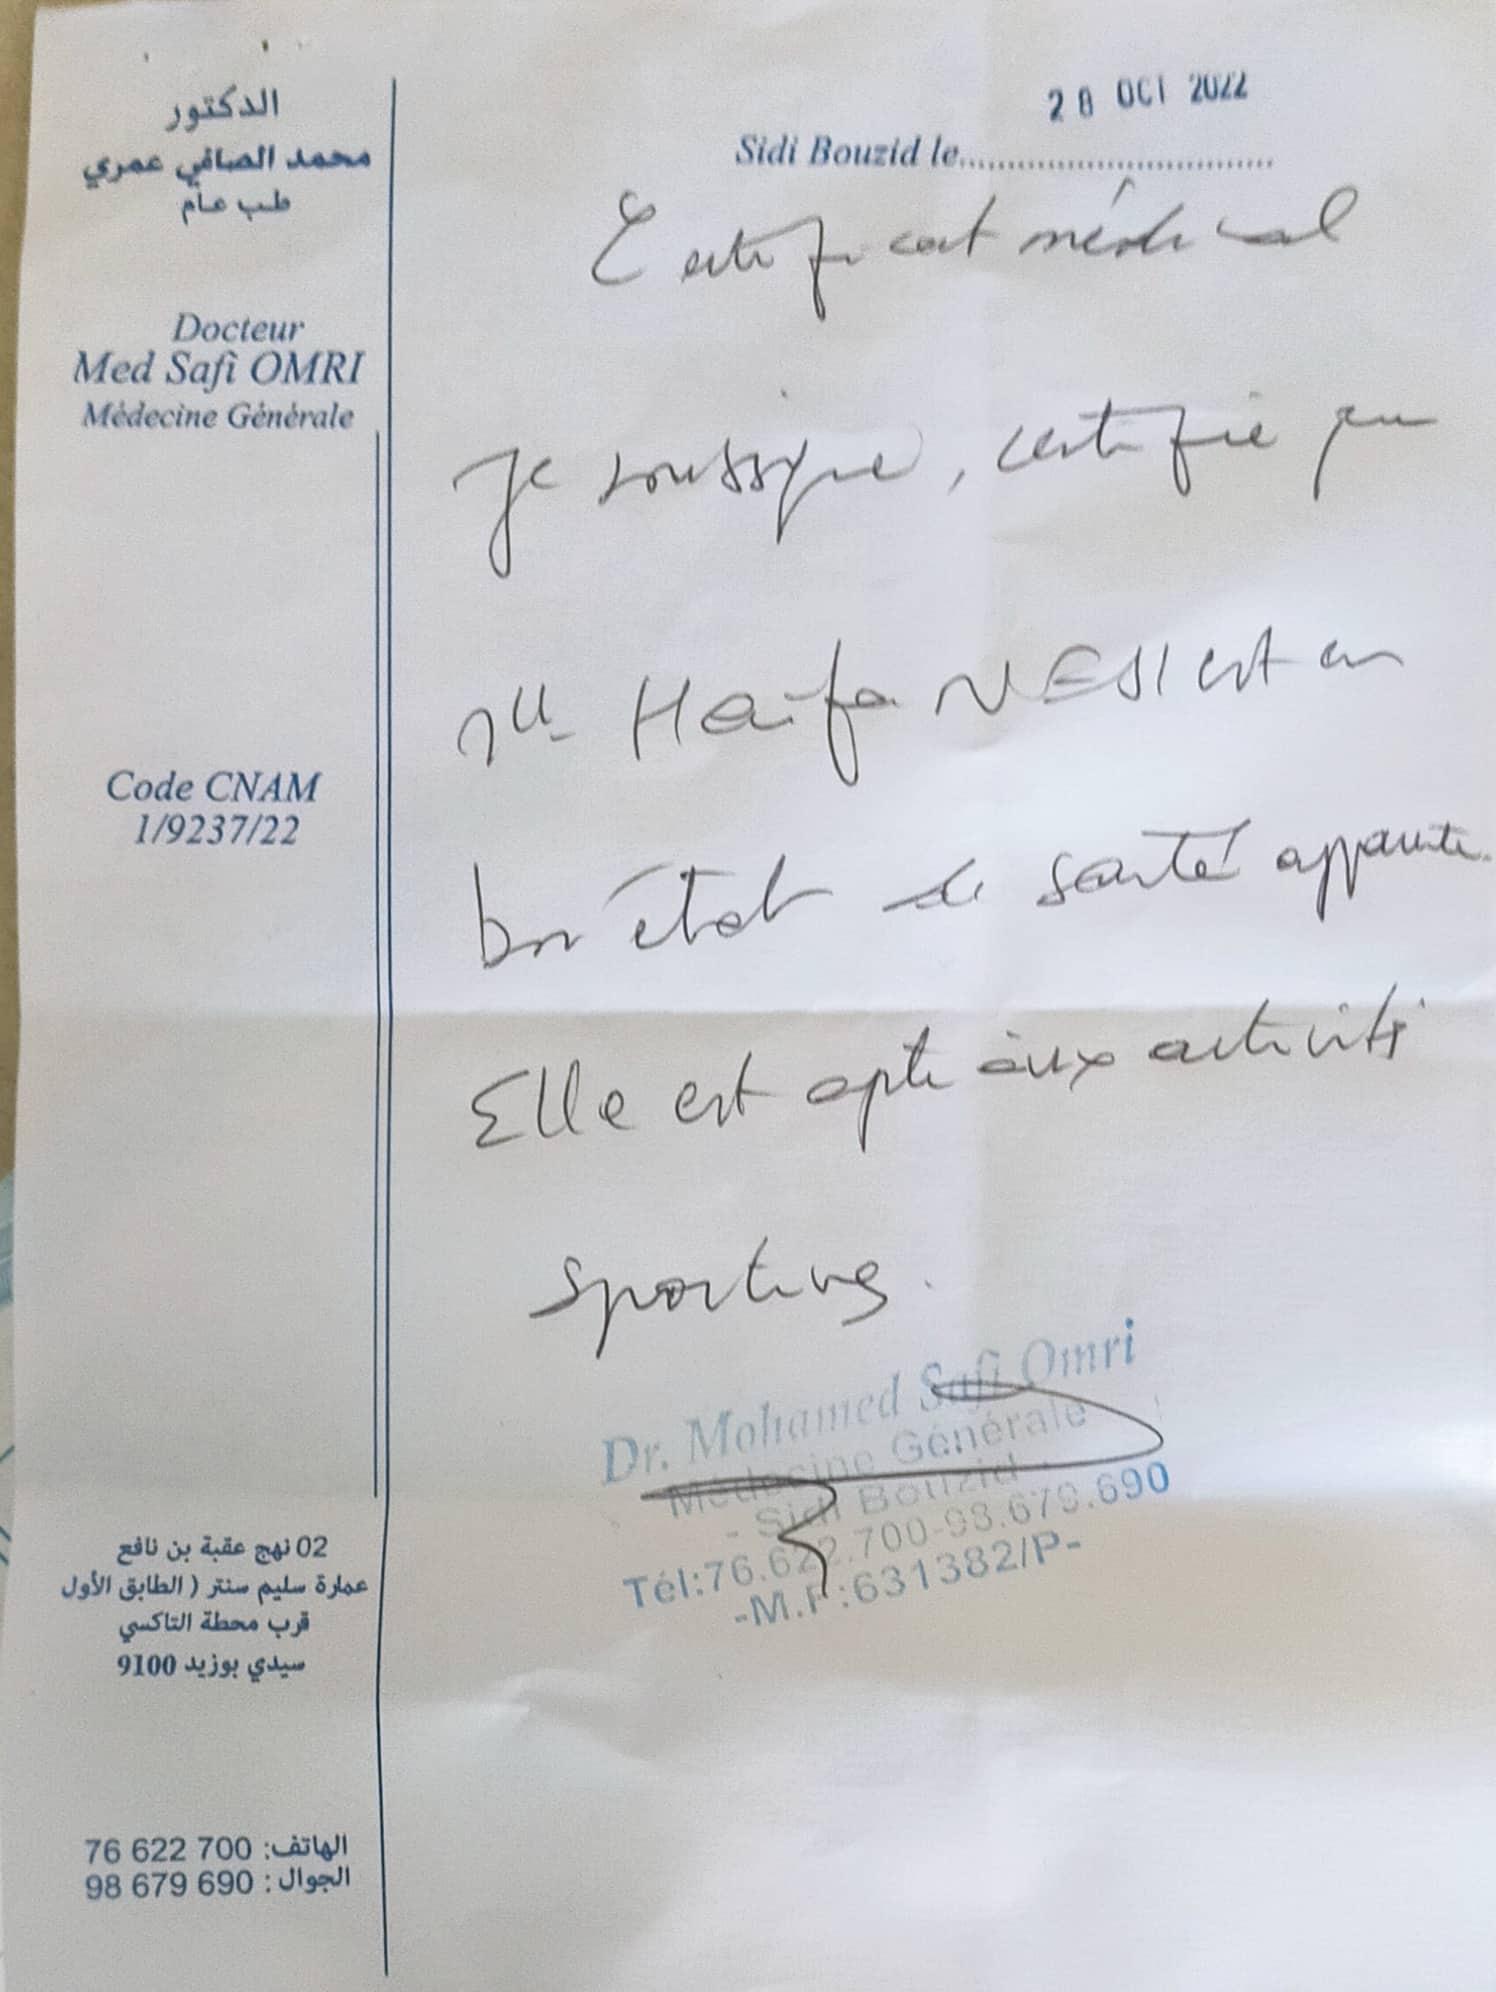 الدكتور
محمد الصافي عمري
طب عام
Docteur
Med Safi OMRI
Médecine Générale
Code CNAM
1/9237/22
02 نهج عقبة بن نافع
عمارة سليم سنتر ( الطابق الأول
قرب محطة التاكسي
سيدي بوزيد 9100
الهاتف: 76 622 700
الجوال : 98 679 690
28 OCT 2022
Sidi Bouzid le..............................
Certificat médical
Je soussigné, certifie que
Mlle Haifa NESI est en
bon état de santé apparente
Elle est apte aux activités
sportives.
Dr. Mohamed Safi Omri
Médecine Générale
- Sidi Bouzid -
Tél:76.622.700-98.679.690
-M.F:631382/P-